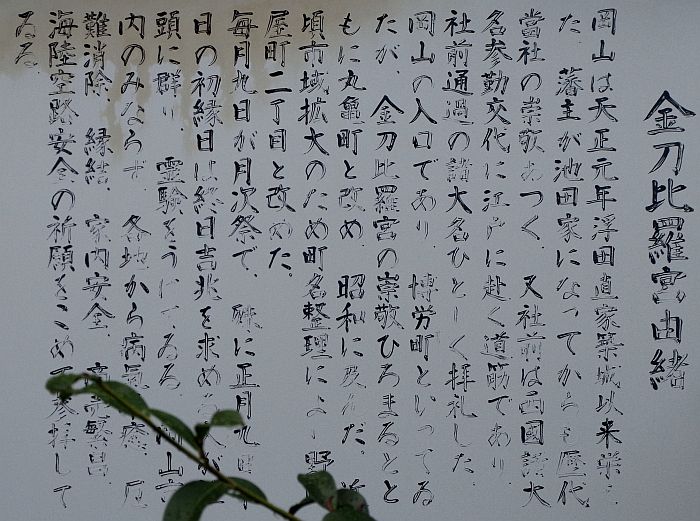 金刀比羅宮由緒
岡山は天正元年浮田直家築城以来栄え
た。藩主が池田家になってからも歴代
當社の崇敬あつく、又社前は西國諸大
名参勤交代に江戸に赴く道筋であり、
社前通過の諸大名ひとしく拝礼した。
岡山の入口であり、博労町といってゐ
たが、金刀比羅宮の崇敬ひろまるとと
もに丸亀町と改め、昭和に及んだ。近
頃市域拡大のため町名整理により野
屋町二丁目と改めた。
毎月九日が月次祭で、殊に正月九日
日の初縁日は終日吉兆を求める人が
頭に群り、霊験をうけてゐる。岡山市
内のみならず、各地から病氣平癒、厄
難消除、縁結、家内安全、商売繁昌、
海陸空路安全の祈願をこめて参拝して
ゐる。